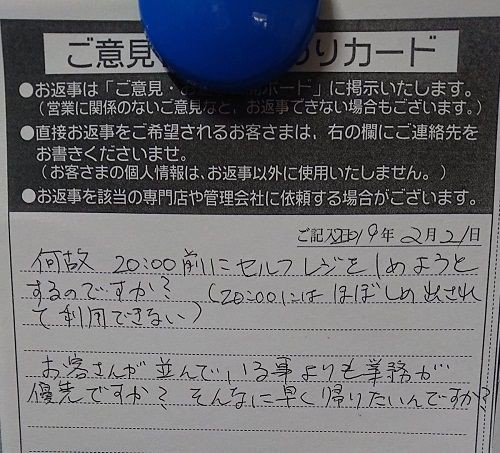 ご意見 りカード
●お返事は「ご意見・お ボード」に掲示いたします。
(営業に関係のないご意見など、お返事できない場合もございます。)
●直接お返事をご希望されるお客さまは、右の欄にご連絡先を
お書きくださいませ。
(お客さまの個人情報は、お返事以外に使用いたしません。)
●お返事を該当の専門店や管理会社に依頼する場合がございます。
ご記入日 19年2月21日
何故 20:00前にセルフレジをしめようと
するのですか? (20:00にはほぼしめ出され
て利用できない)
お客さんが並んでいる事よりも業務が
優先ですか? そんなに早く帰りたいんですか?